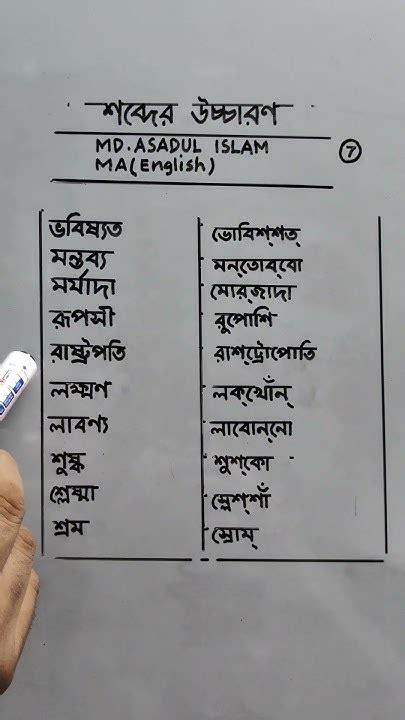 শব্দের উচ্চারণ
MD. ASADUL ISLAM
MA(English)
7
ভবিষ্যত ভোবিশ্শত্
মন্তব্য মন্তোব্বো
মর্যাদা মোর্জাদা
রূপসী রুপোশি
রাষ্ট্রপতি রাশ্ট্রোপোতি
লক্ষ্মণ লক্খোঁন্
লাবণ্য লাবোন্নো
শুষ্ক শুশ্কো
শ্লেষ্মা স্লেশ্শাঁ
শ্রম স্রোম্